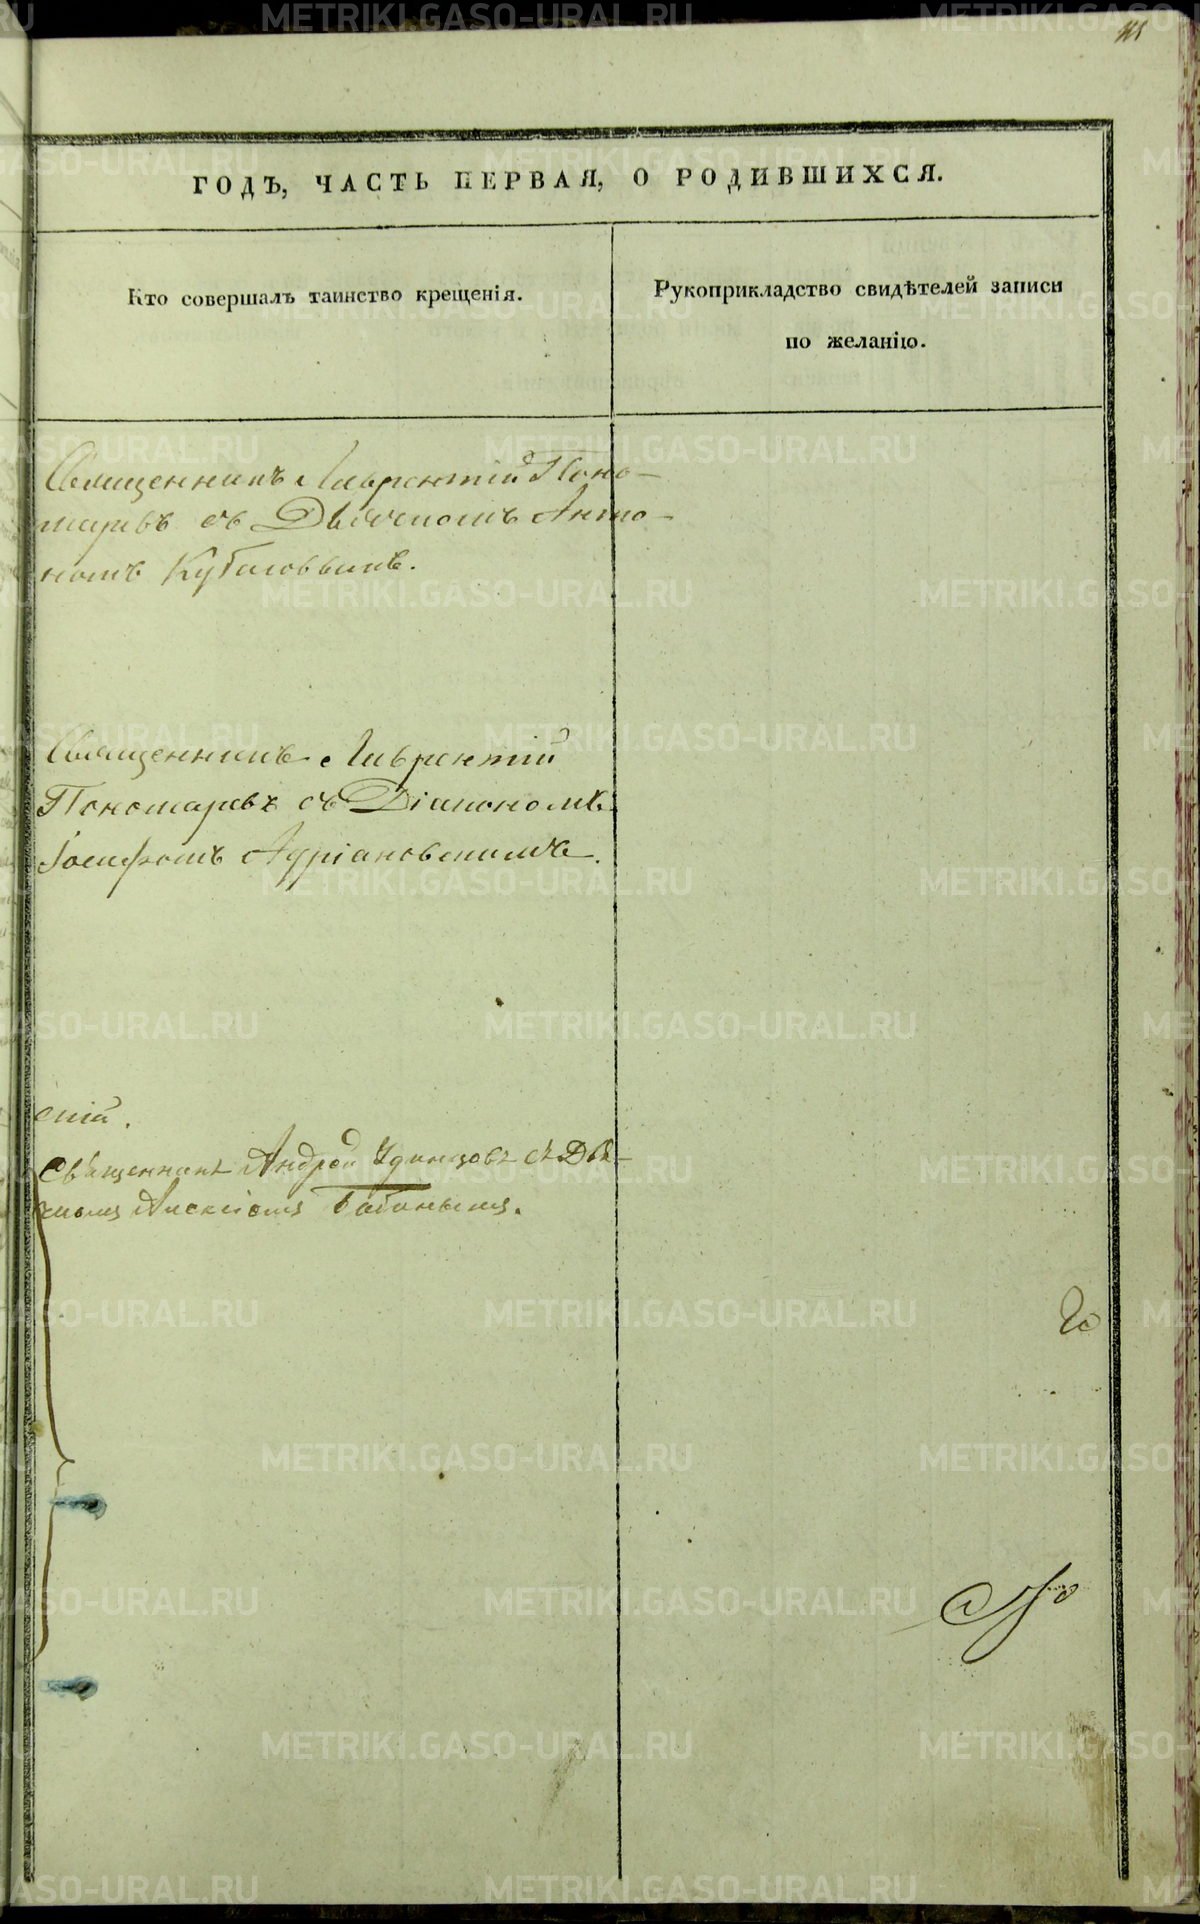 ГОДЪ, ЧАСТЬ ПЕРВАЯ, О РОДИВШИХСЯ.
Кто совершалъ таинство крещенія.
Рукоприкладство свидѣтелей записи
по желанію.
Священникъ Лаврентій Поно-
маревъ съ Дьячкомъ Анто-
номъ
Священникъ Лаврентій
Пономаревъ съ Діакономъ
Іосифомъ Адріановскимъ.
скій.
Священникъ Андрей Удинцовъ съ Дья-
Алексіемъ Бабинымъ.
METRIKI.GASO-URAL.RU